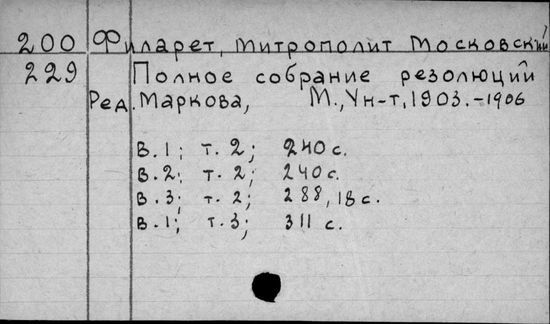 200 Филарет, митрополит Московский
229 Полное собрание резолюций
Ред. Маркова, М., Ун-т, 1903.-1906
В.1; т. 2; 240 с.
В.2; т. 2; 240 с.
В.3; т. 2; 288, 18 с.
В.1; т.3; 311 с.